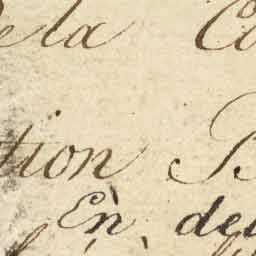 De la Co
tion B
En deu